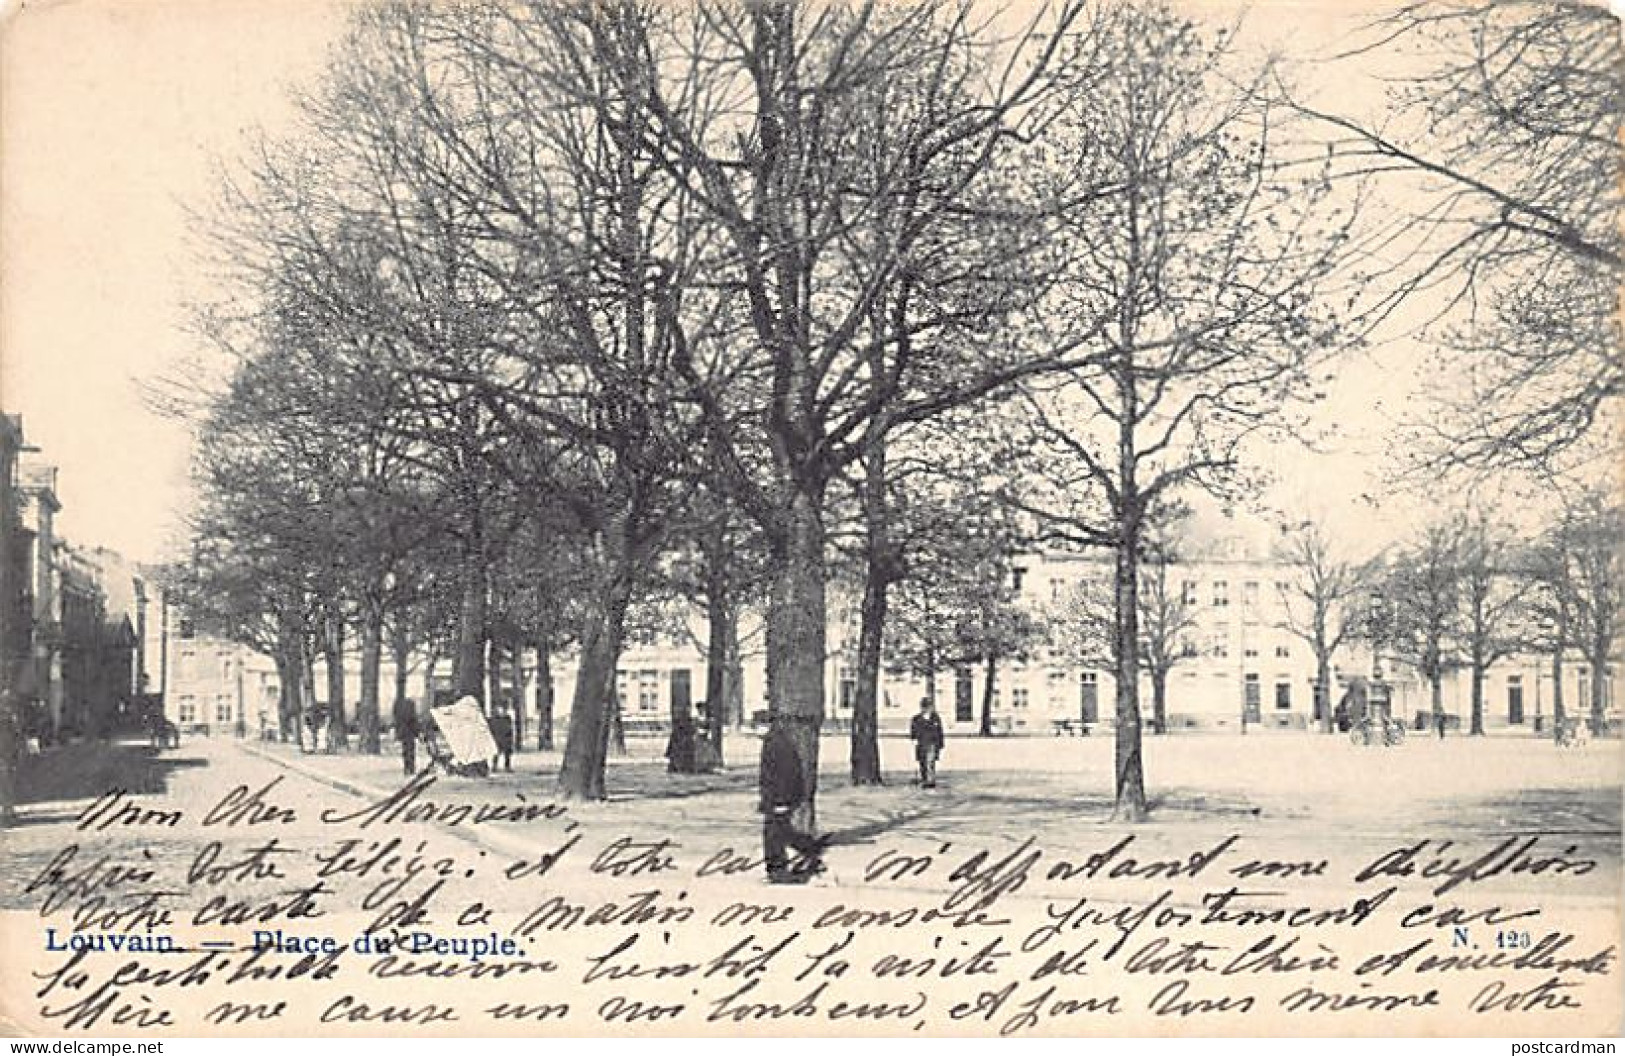 Mon Cher Monsieur,
Après Votre télégr. et Votre carte m'apportant une déception
votre carte de ce matin me console parfaitement car
Louvain. — Place du Peuple. N. 123
la certitude recevoir bientôt la visite de Votre Chère et excellente
Mère me cause un vrai bonheur, et pour Vous même Votre
LOUVAIN (VI. Br.) Place du Peuple
postcardman